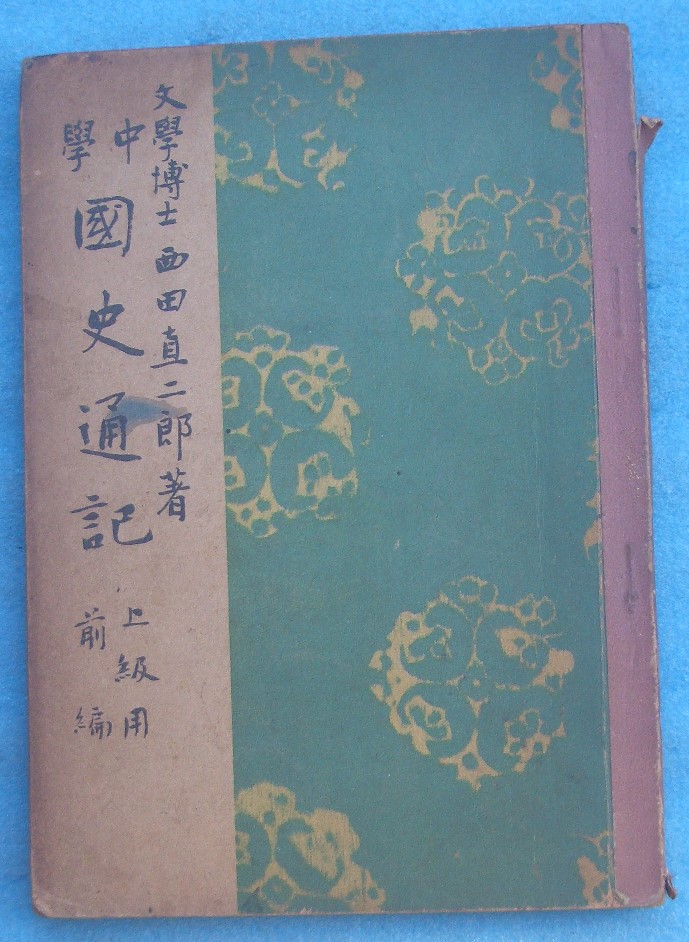 文學博士 西田直二郎著
中學 國史通記 上級用
前編